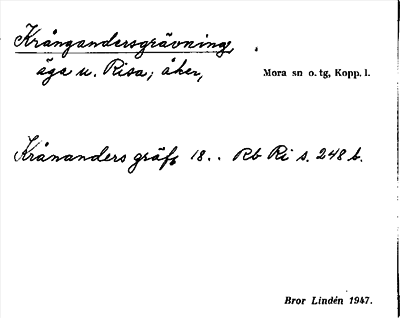 Krångandersgrävning,
äga u. Risa; åker,
Mora sn o. tg, Kopp. l.
Krånanders gräft 18.. Rb Ri s. 248 b.
Bror Lindén 1947.